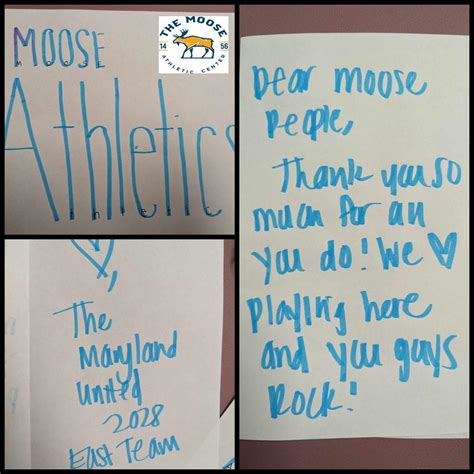 MOOSE
Athletics
THE MOOSE
14 56
ATHLETIC CENTER
Dear moose
People,
Thank you so
much for all
you do! We ♡
playing here
and you guys
Rock!
The
Maryland
United
2028
East Team